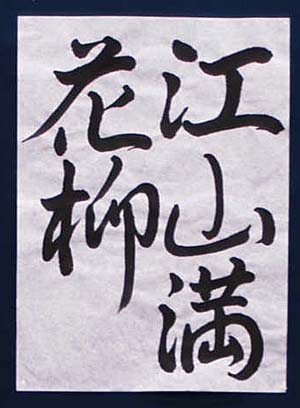 江山満
花柳